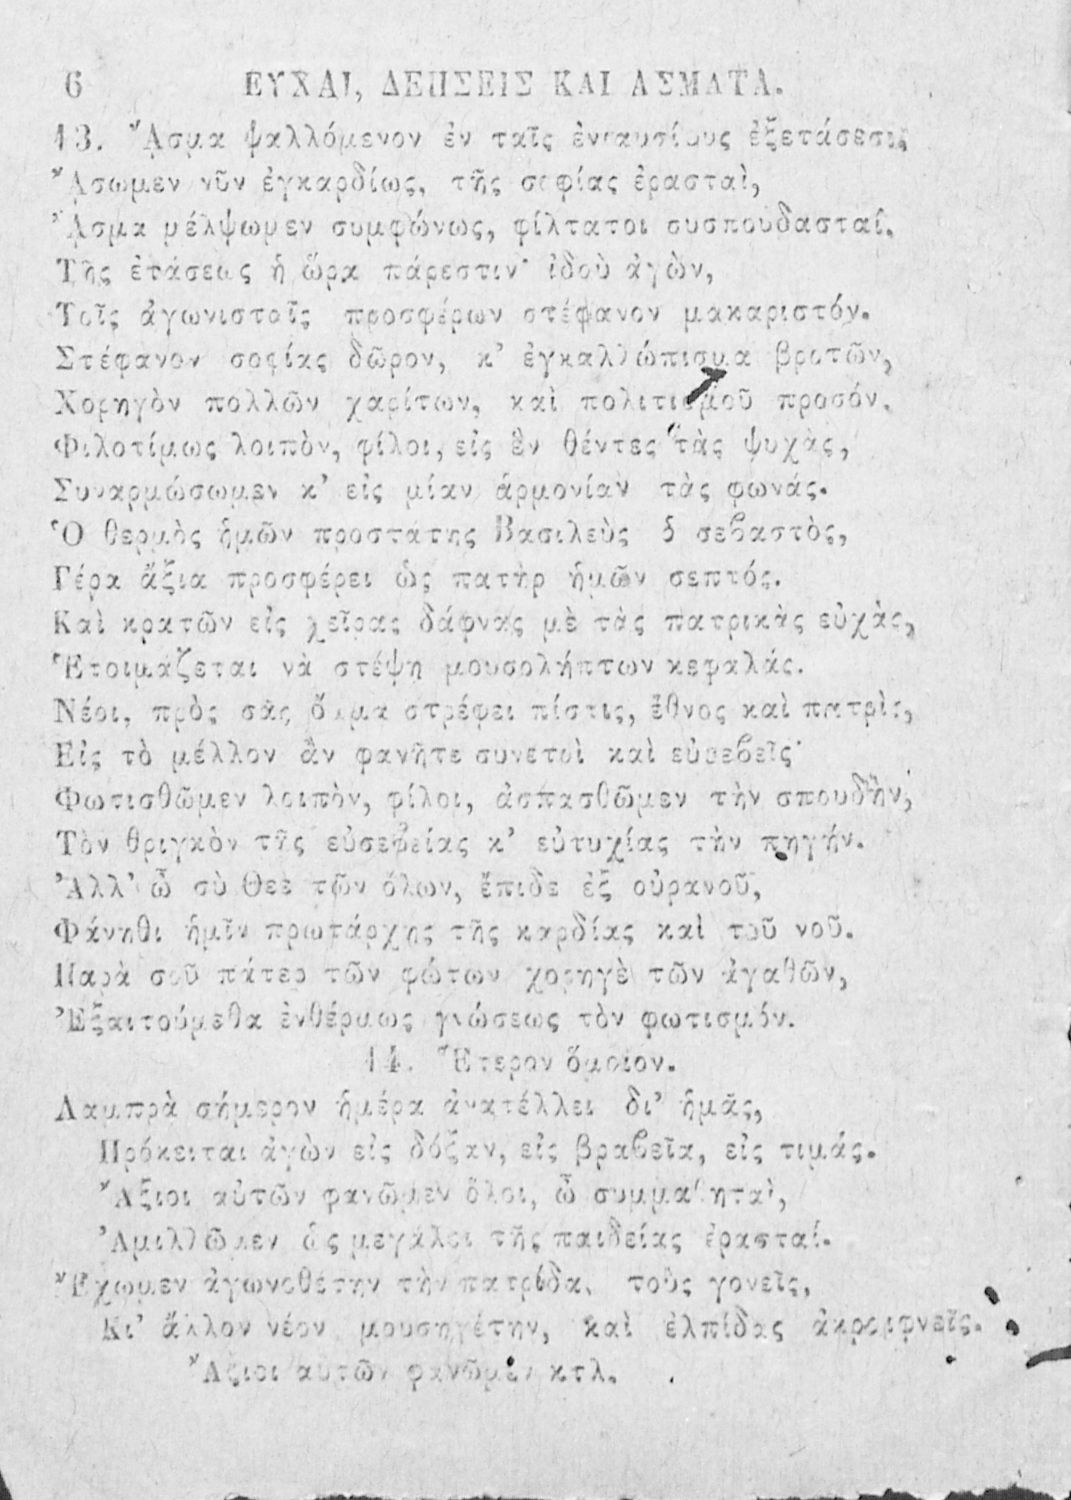 6 ΕΥΧΑΙ, ΔΕΗΣΕΙΣ ΚΑΙ ΑΣΜΑΤΑ.
13. ᾎσμα ψαλλόμενον ἐν ταῖς ἐνιαυσίους ἐξετάσεσι;
ᾌσωμεν νῦν ἐγκαρδίως, τῆς σοφίας ἐρασταὶ,
ᾎσμα μέλψωμεν συμφώνως, φίλτατοι συσπουδασταί.
Τῆς ἐτάσεως ἡ ὥρα πάρεστιν· ἰδοὺ ἀγὼν,
Τοῖς ἀγωνισταῖς προσφέρων στέφανον μακαριστόν.
Στέφανον σοφίας δῶρον, κ’ ἐγκαλλώπισμα βροτῶν,
Χορηγὸν πολλῶν χαρίτων, καὶ πολιτισμοῦ προσόν.
Φιλοτίμως λοιπὸν, φίλοι, εἰς ἓν θέντες τὰς ψυχὰς,
Συναρμώσωμεν κ’ εἰς μίαν ἁρμονίαν τὰς φωνάς.
Ὁ θερμὸς ἡμῶν προστάτης Βασιλεὺς ὁ σεβαστὸς,
Γέρα ἄξια προσφέρει ὡς πατὴρ ἡμῶν σεπτός.
Καὶ κρατῶν εἰς χεῖρας δάφνας μὲ τὰς πατρικὰς εὐχὰς,
Ἑτοιμάζεται νὰ στέψῃ μουσολήπτων κεφαλάς.
Νέοι, πρὸς σᾶς ὄμμα στρέφει πίστις, ἔθνος καὶ πατρὶς,
Εἰς τὸ μέλλον ἂν φανῆτε συνετοὶ καὶ εὐσεβεῖς·
Φωτισθῶμεν λοιπὸν, φίλοι, ἀσπασθῶμεν τὴν σπουδὴν,
Τὸν θριγκὸν τῆς εὐσεβείας κ’ εὐτυχίας τὴν πηγήν.
Ἀλλ’ ὦ σὺ Θεὲ τῶν ὅλων, ἔπιδε ἐξ οὐρανοῦ,
Φάνηθι ἡμῖν πρωτάρχης τῆς καρδίας καὶ τοῦ νοῦ.
Παρὰ σοῦ πάτερ τῶν φώτων χορηγὲ τῶν ἀγαθῶν,
Ἐξαιτούμεθα ἐνθέρμως γνώσεως τὸν φωτισμόν.
14. Ἕτερον ὅμοιον.
Λαμπρὰ σήμερον ἡμέρα ἀνατέλλει δι’ ἡμᾶς,
Πρόκειται ἀγὼν εἰς δόξαν, εἰς βραβεῖα, εἰς τιμάς.
Ἄξιοι αὐτῶν φανῶμεν ὅλοι, ὦ συμμαθηταὶ,
Ἁμιλλῶμεν ὡς μεγάλοι τῆς παιδείας ἐρασταί.
Ἔχωμεν ἀγωνοθέτην τὴν πατρίδα, τοὺς γονεῖς,
Κι’ ἄλλον νέον μουσηγέτην, καὶ ἐλπίδας ἀκραιφνεῖς.
Ἄξιοι αὐτῶν φανῶμεν κτλ.